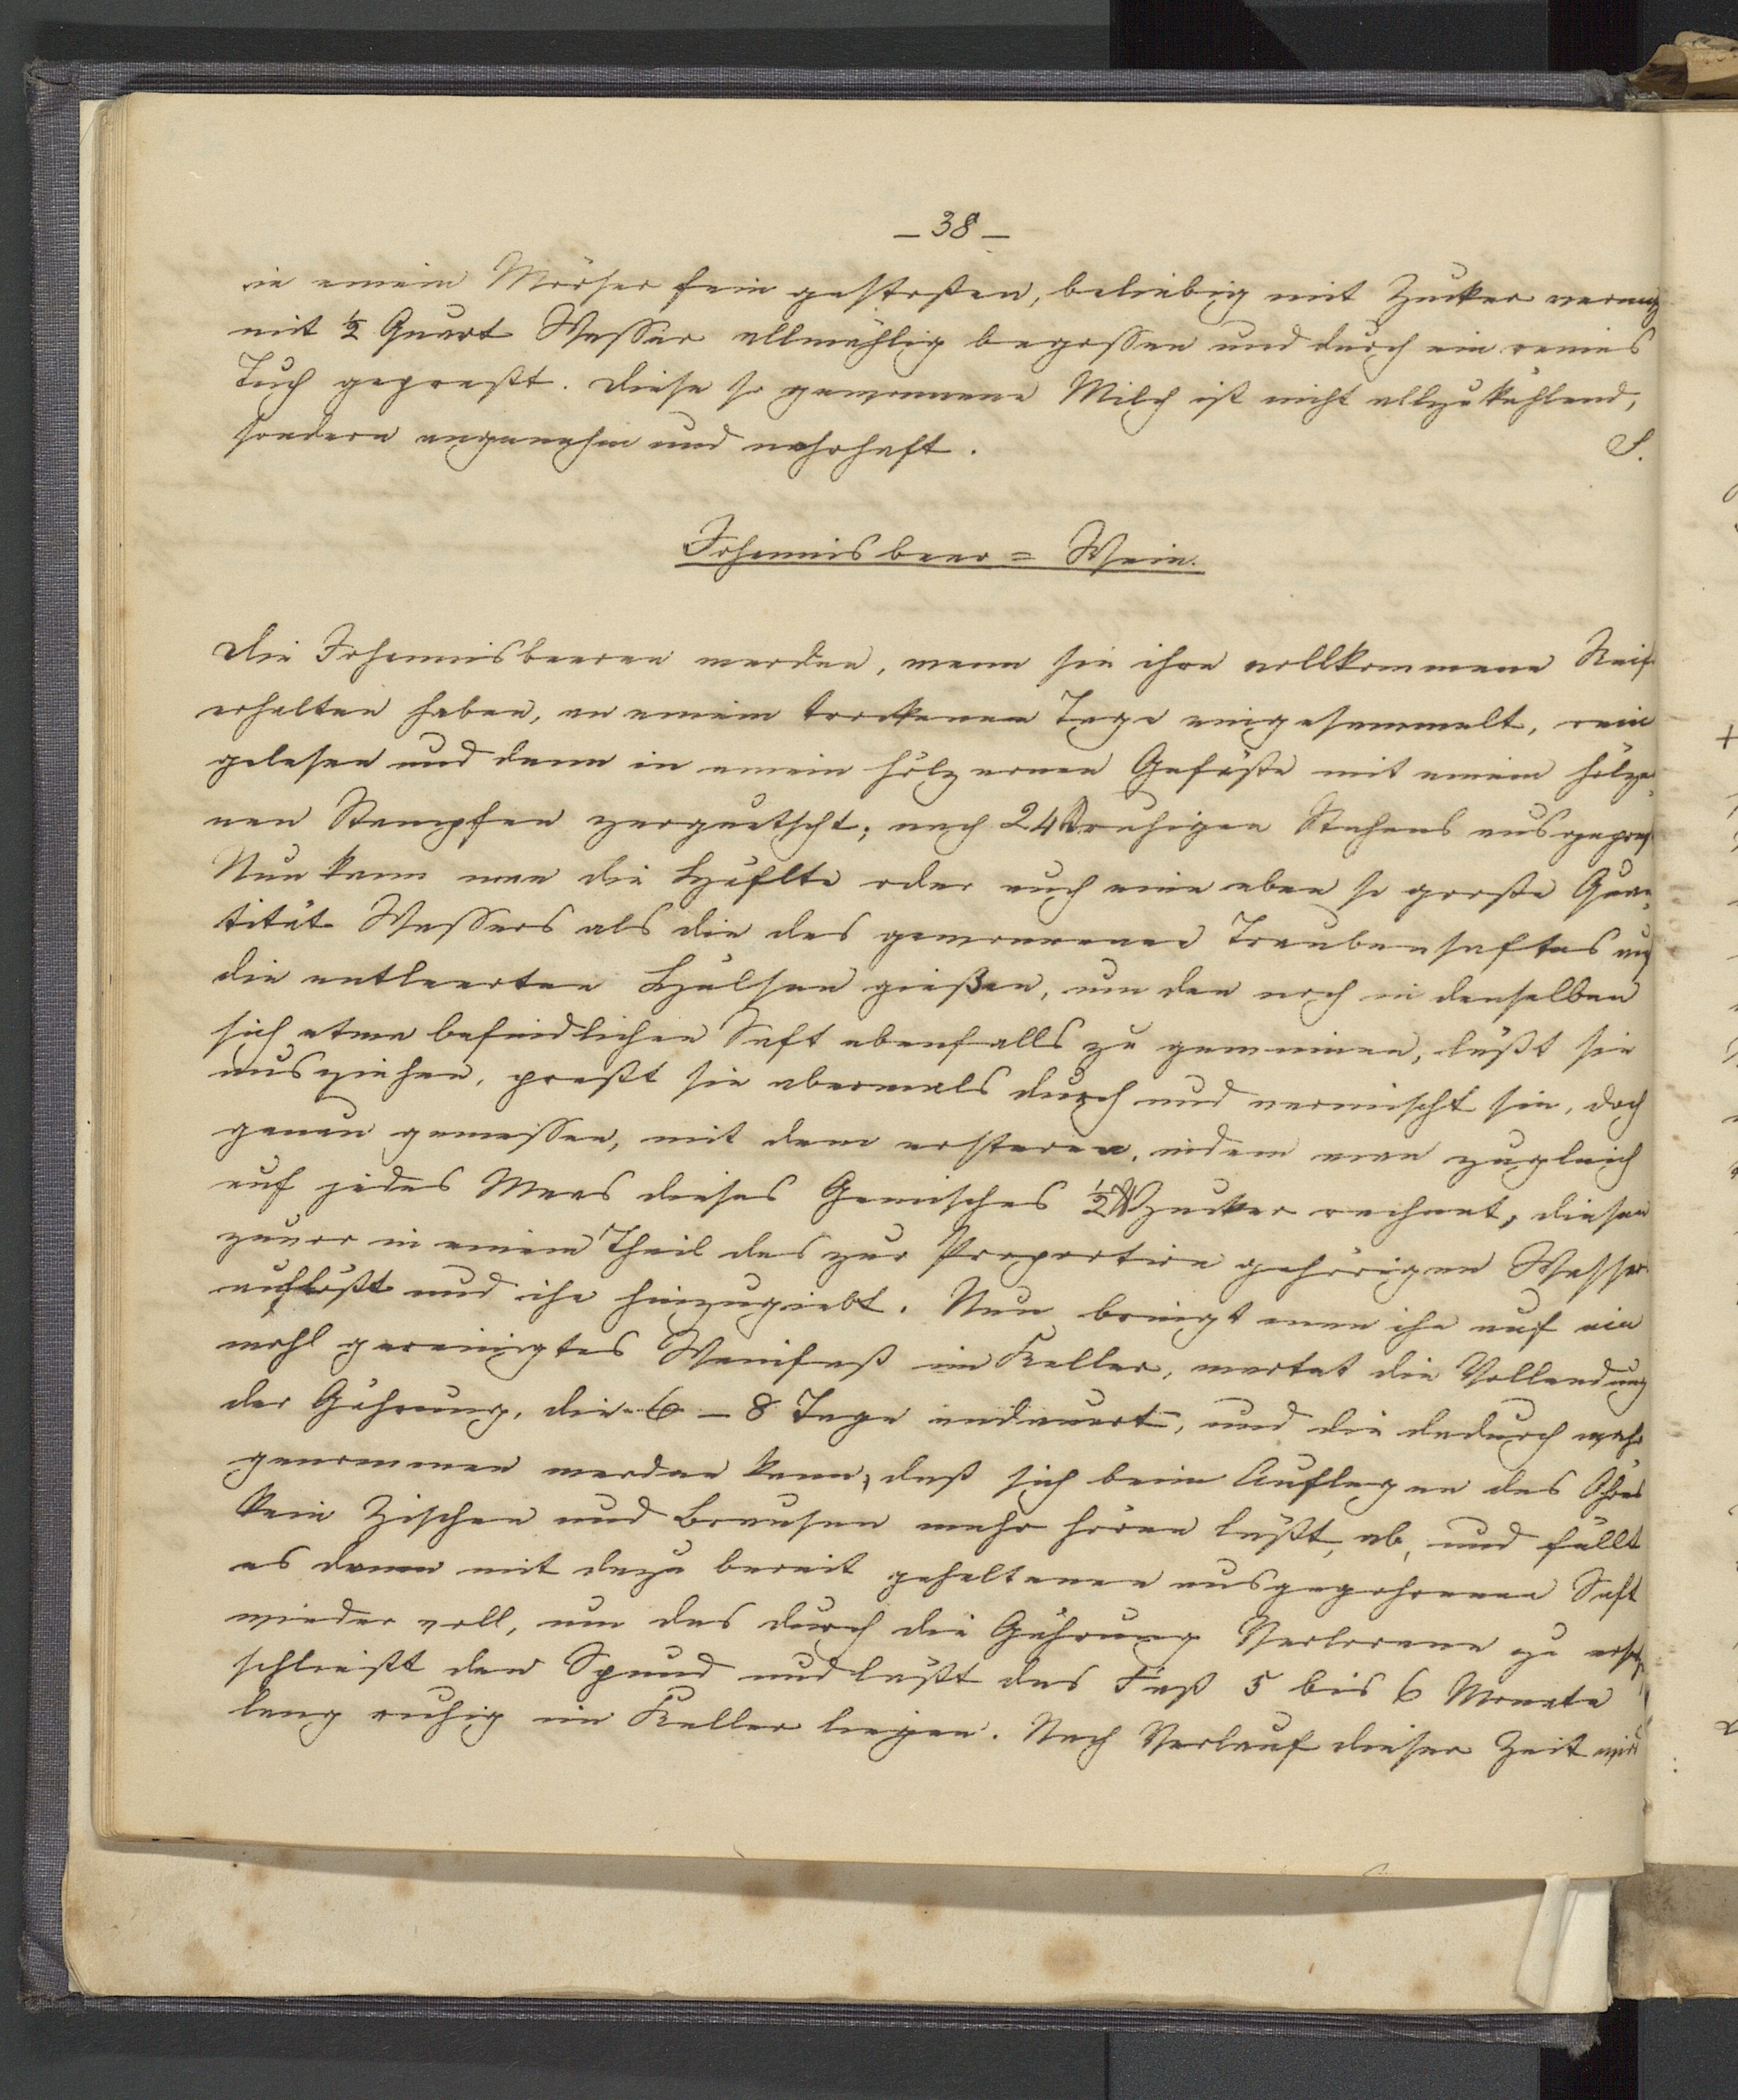 – 38 –
in einem Mörser fein gestoßen, beliebig mit Zucker vermengt
mit ½ Quart Wasser allmählig begossen und durch ein reines
Tuch gepreßt. Diese so gewonnene Milch ist nicht allzukühlend,
sondern angenehm und nahrhaft. S.
Johannisbeer = Wein.
Die Johannisbeeren werden, wenn sie ihre vollkommene Reife
erhalten haben, an einem trockenen Tage eingesammelt, rein
gelesen und dann in einem hölzernen Gefäße mit einem hölzer-
nen Stampfen zerquetscht; nach 24 ruhigen Stehens ausgepreßt
Nun kann man die Hälfte oder auch eine eben so große Quan-
tität Wassers als die des gewonnenen Traubensaftes auf
die entleerten Hülsen gießen, um den noch in denselben
sich etwa befindlichen Saft ebenfalls zu gewinnen, läßt sie
ausziehen, preßt sie abermals durch und vermischt sie, doch
genau gemessen, mit dem ersteren, indem man zugleich
auf jedes Maas dieses Gemisches ½ ℔ Zucker rechnet, diesen
zuvor in einem Theil des zur Proportion gehörigen Wasser
auflößt und ihn hinzugiebt. Nun bringt man ihn auf ein
wohl gereinigtes Weinfaß im Keller, wartet die Vollendung
der Gährung, die 6 – 8 Tage andauert, und die dadurch wahr
genommen werden kann, daß sich beim Auflegen des Ohres
kein Zischen und Brausen mehr hören läßt, ab, und füllt
es dann mit dazu bereit gehaltenen ausgegohrenen Saft
wieder voll, um das durch die Gährung Verlorene zu ersetzen
schließt den Spund und läßt das Faß 5 bis 6 Monate
lang ruhig im Keller liegen. Nach Verlauf dieser Zeit wird